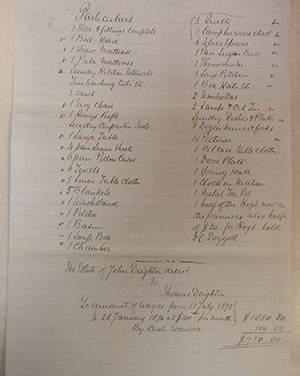 Particulars
2 Stoves & fittings complett
1 Bed Stead
1 Straw Mattrass
1 Pulu Mattrass
Sundry Kitchen Utensils
Tins Washing tubs &c.
3 Saws
1 Easy Chair
1 Henrys Rifle
Sundry Carpenters Tools
1 Large Table
4 pair Linen Sheets
6 pair Pillow Cases
6 Towells
3 Linen Table Cloths
5 Blankets
1 Wash Stand
1 Pitcher
1 Basin
1 Soap Box
1 Chamber
3 Quilts
1 Camphorwood Chest
6 Silver Spoons
1 Pan Sugar Bows
1 Thermometer
3 Soup Pitchers
1 Box Hats &c.
2 Umbrellas
2 Lamps & Oil Tin
Sundry Dishes & Plates
1 Dozen knives & forks
Pictures
1 Oil Case Table Cloth
1 Door Plate
1 Spring Scale
1 Clock in Kitchen
1 Metal Tea Pot
1 half of the Hogs now on
the premises also half
of $30 for Hogs Sold
E C Doggett
The Estate of John Deighton deceased
To
Thomas Deighton
To Amount of Wages from 13 July 1873
to 28 January 1874 at $100 per month
$1050.00
By Cash received
100.00